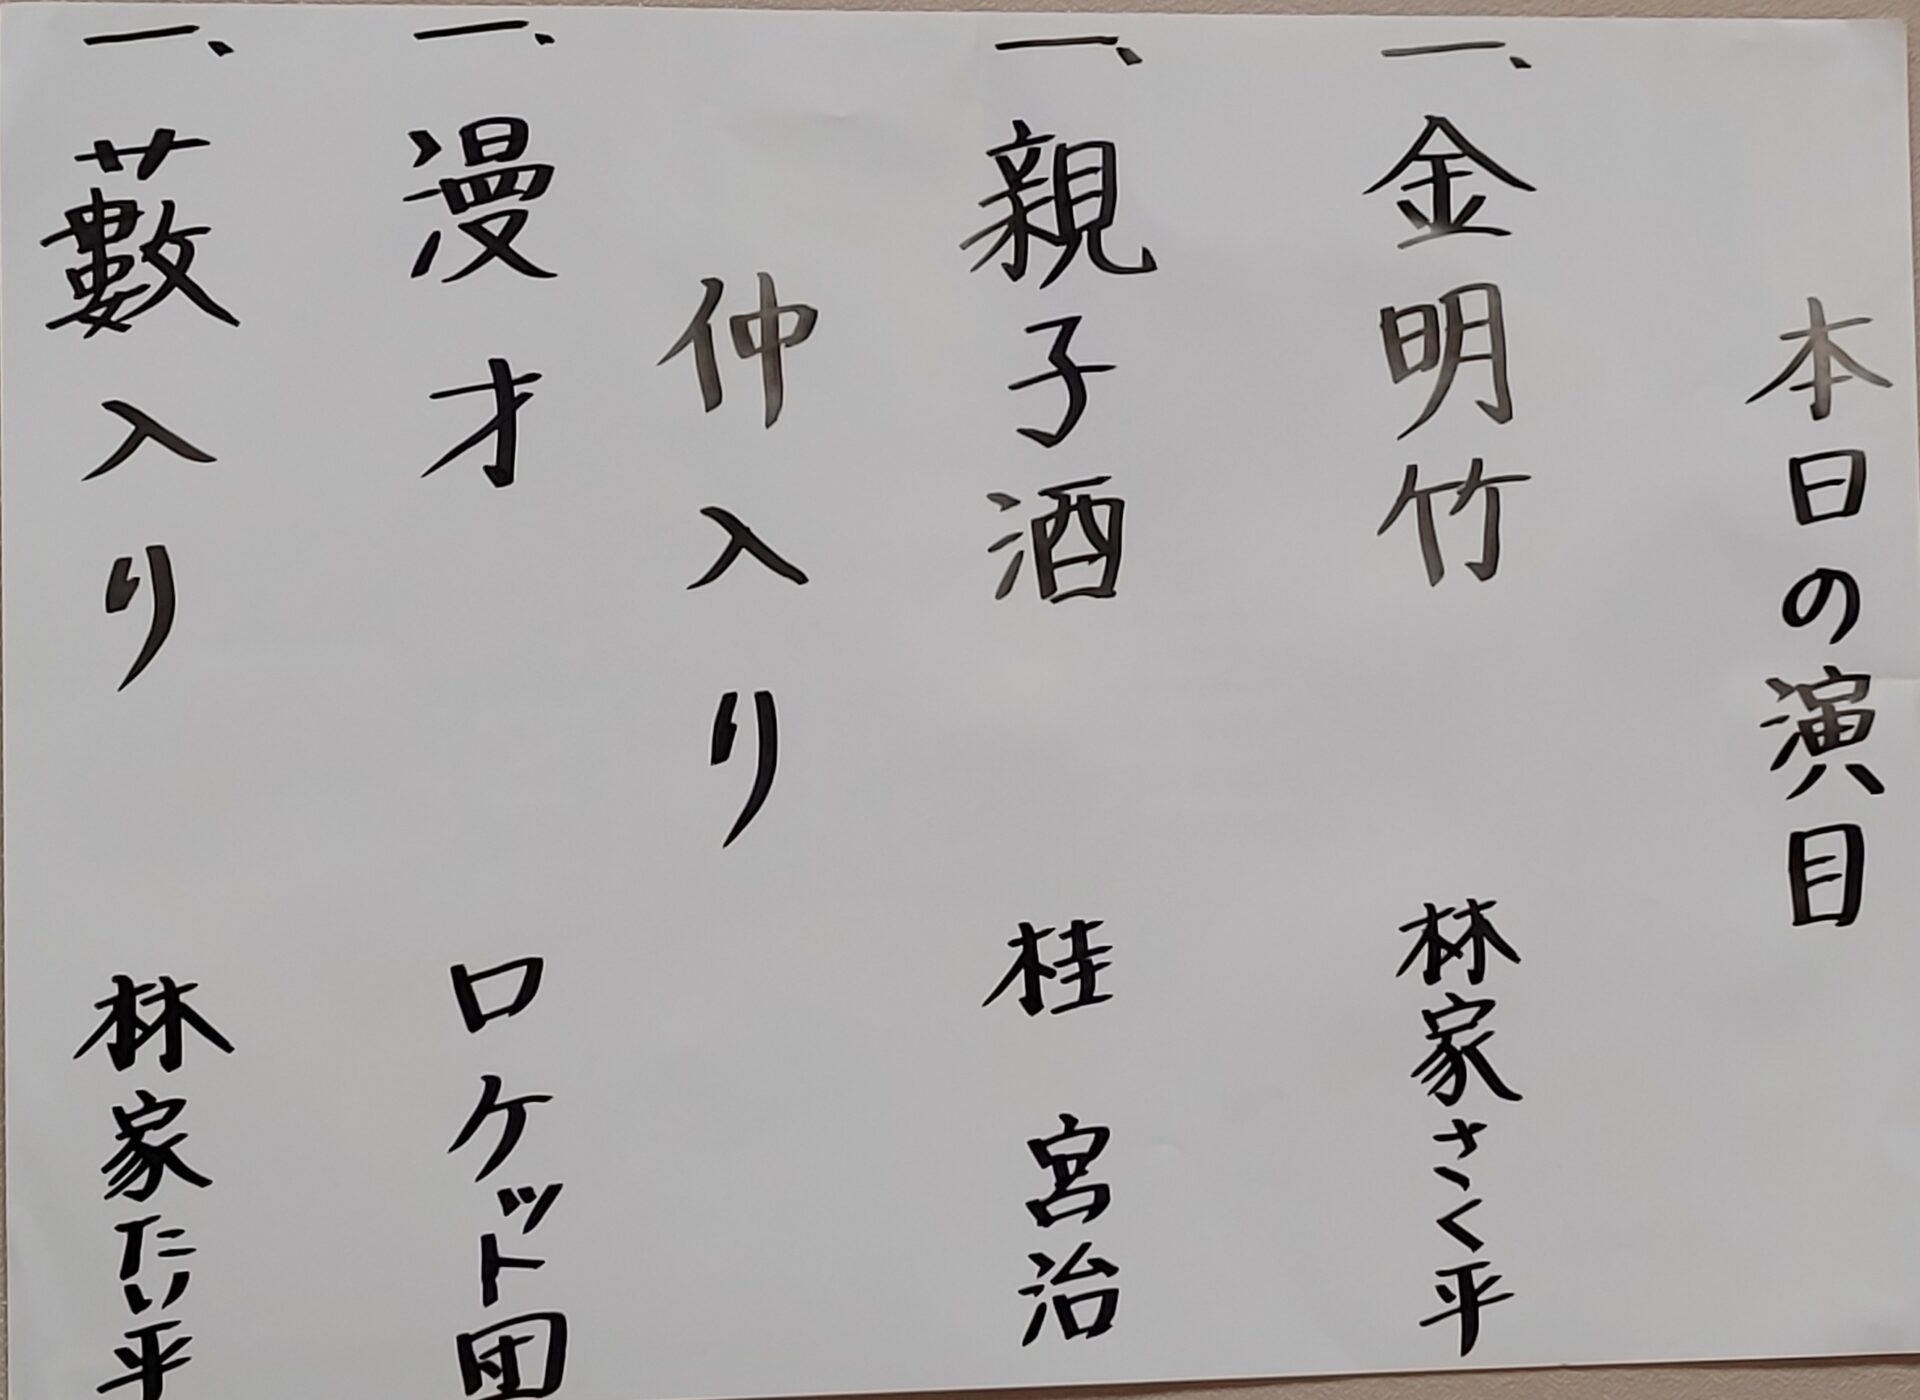 本日の演目
一、金明竹 林家さく平
一、親子酒 桂 宮治
仲入り
一、漫才 ロケット団
一、藪入り 林家たい平